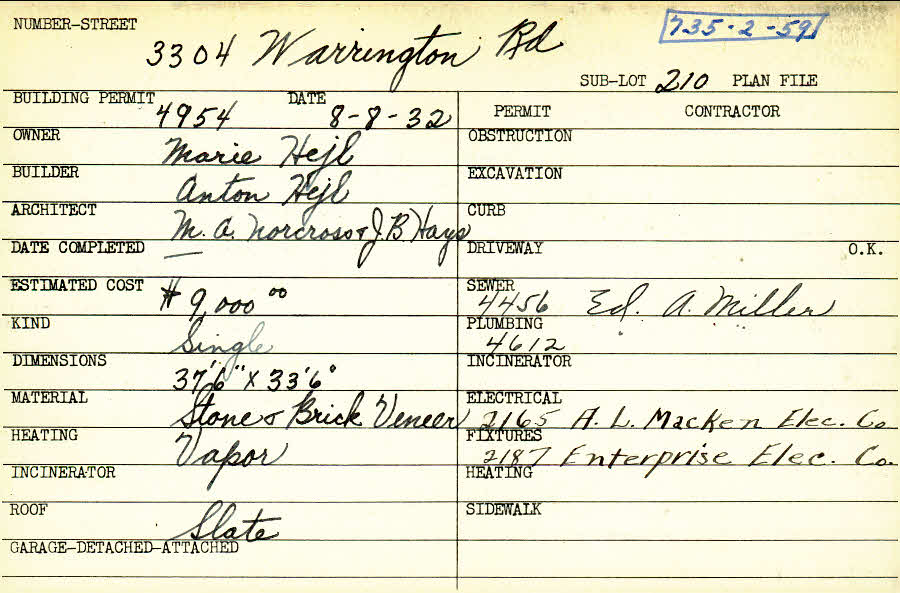 NUMBER-STREET 3304 Warrington Rd 735-2-59
SUB-LOT 210 PLAN FILE
BUILDING PERMIT 4954 DATE 8-8-32
PERMIT CONTRACTOR
OWNER Marie Hejl
OBSTRUCTION
BUILDER Anton Hejl
EXCAVATION
ARCHITECT M. A. Norcross & J. B. Hays
CURB
DATE COMPLETED —
DRIVEWAY O.K.
ESTIMATED COST $9,000 00
SEWER 4456 Ed. A. Miller
KIND Single
PLUMBING 4612
DIMENSIONS 37'6" X 33'6"
INCINERATOR
MATERIAL Stone & Brick Veneer
ELECTRICAL 2165 A. L. Macken Elec. Co
HEATING Vapor
FIXTURES 2187 Enterprise Elec. Co.
INCINERATOR
HEATING
ROOF Slate
SIDEWALK
GARAGE-DETACHED-ATTACHED